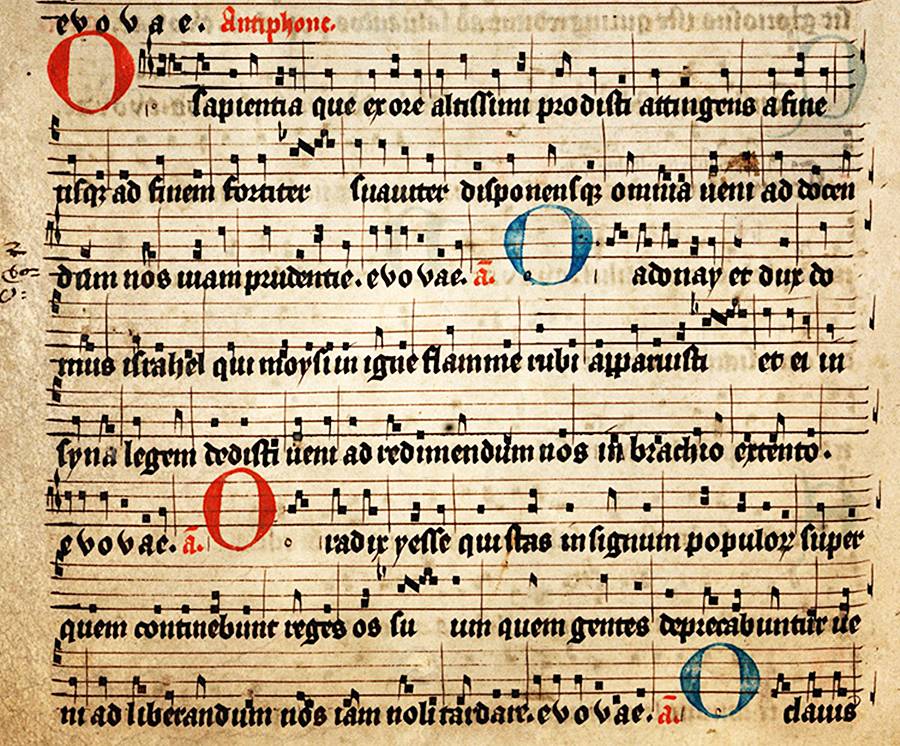 evovae. Antiphone.
O sapientia que ex ore altissimi prodisti attingens a fine
usqz ad finem fortiter suauiter disponensqz omnia ueni ad docen
dum nos uiam prudentie. evovae. ā. O adonay et dux do
mus israhel qui moysi in igne flamme rubi apparuisti et ei in
syna legem dedisti ueni ad redimendum nos in brachio extento.
evovae. ā. O radix yesse qui stas in signum populoꝝ super
quem continebunt reges os suum quem gentes deprecabuntur ue
ni ad liberandum nos iam noli tardare. evovae. ā. O clauis